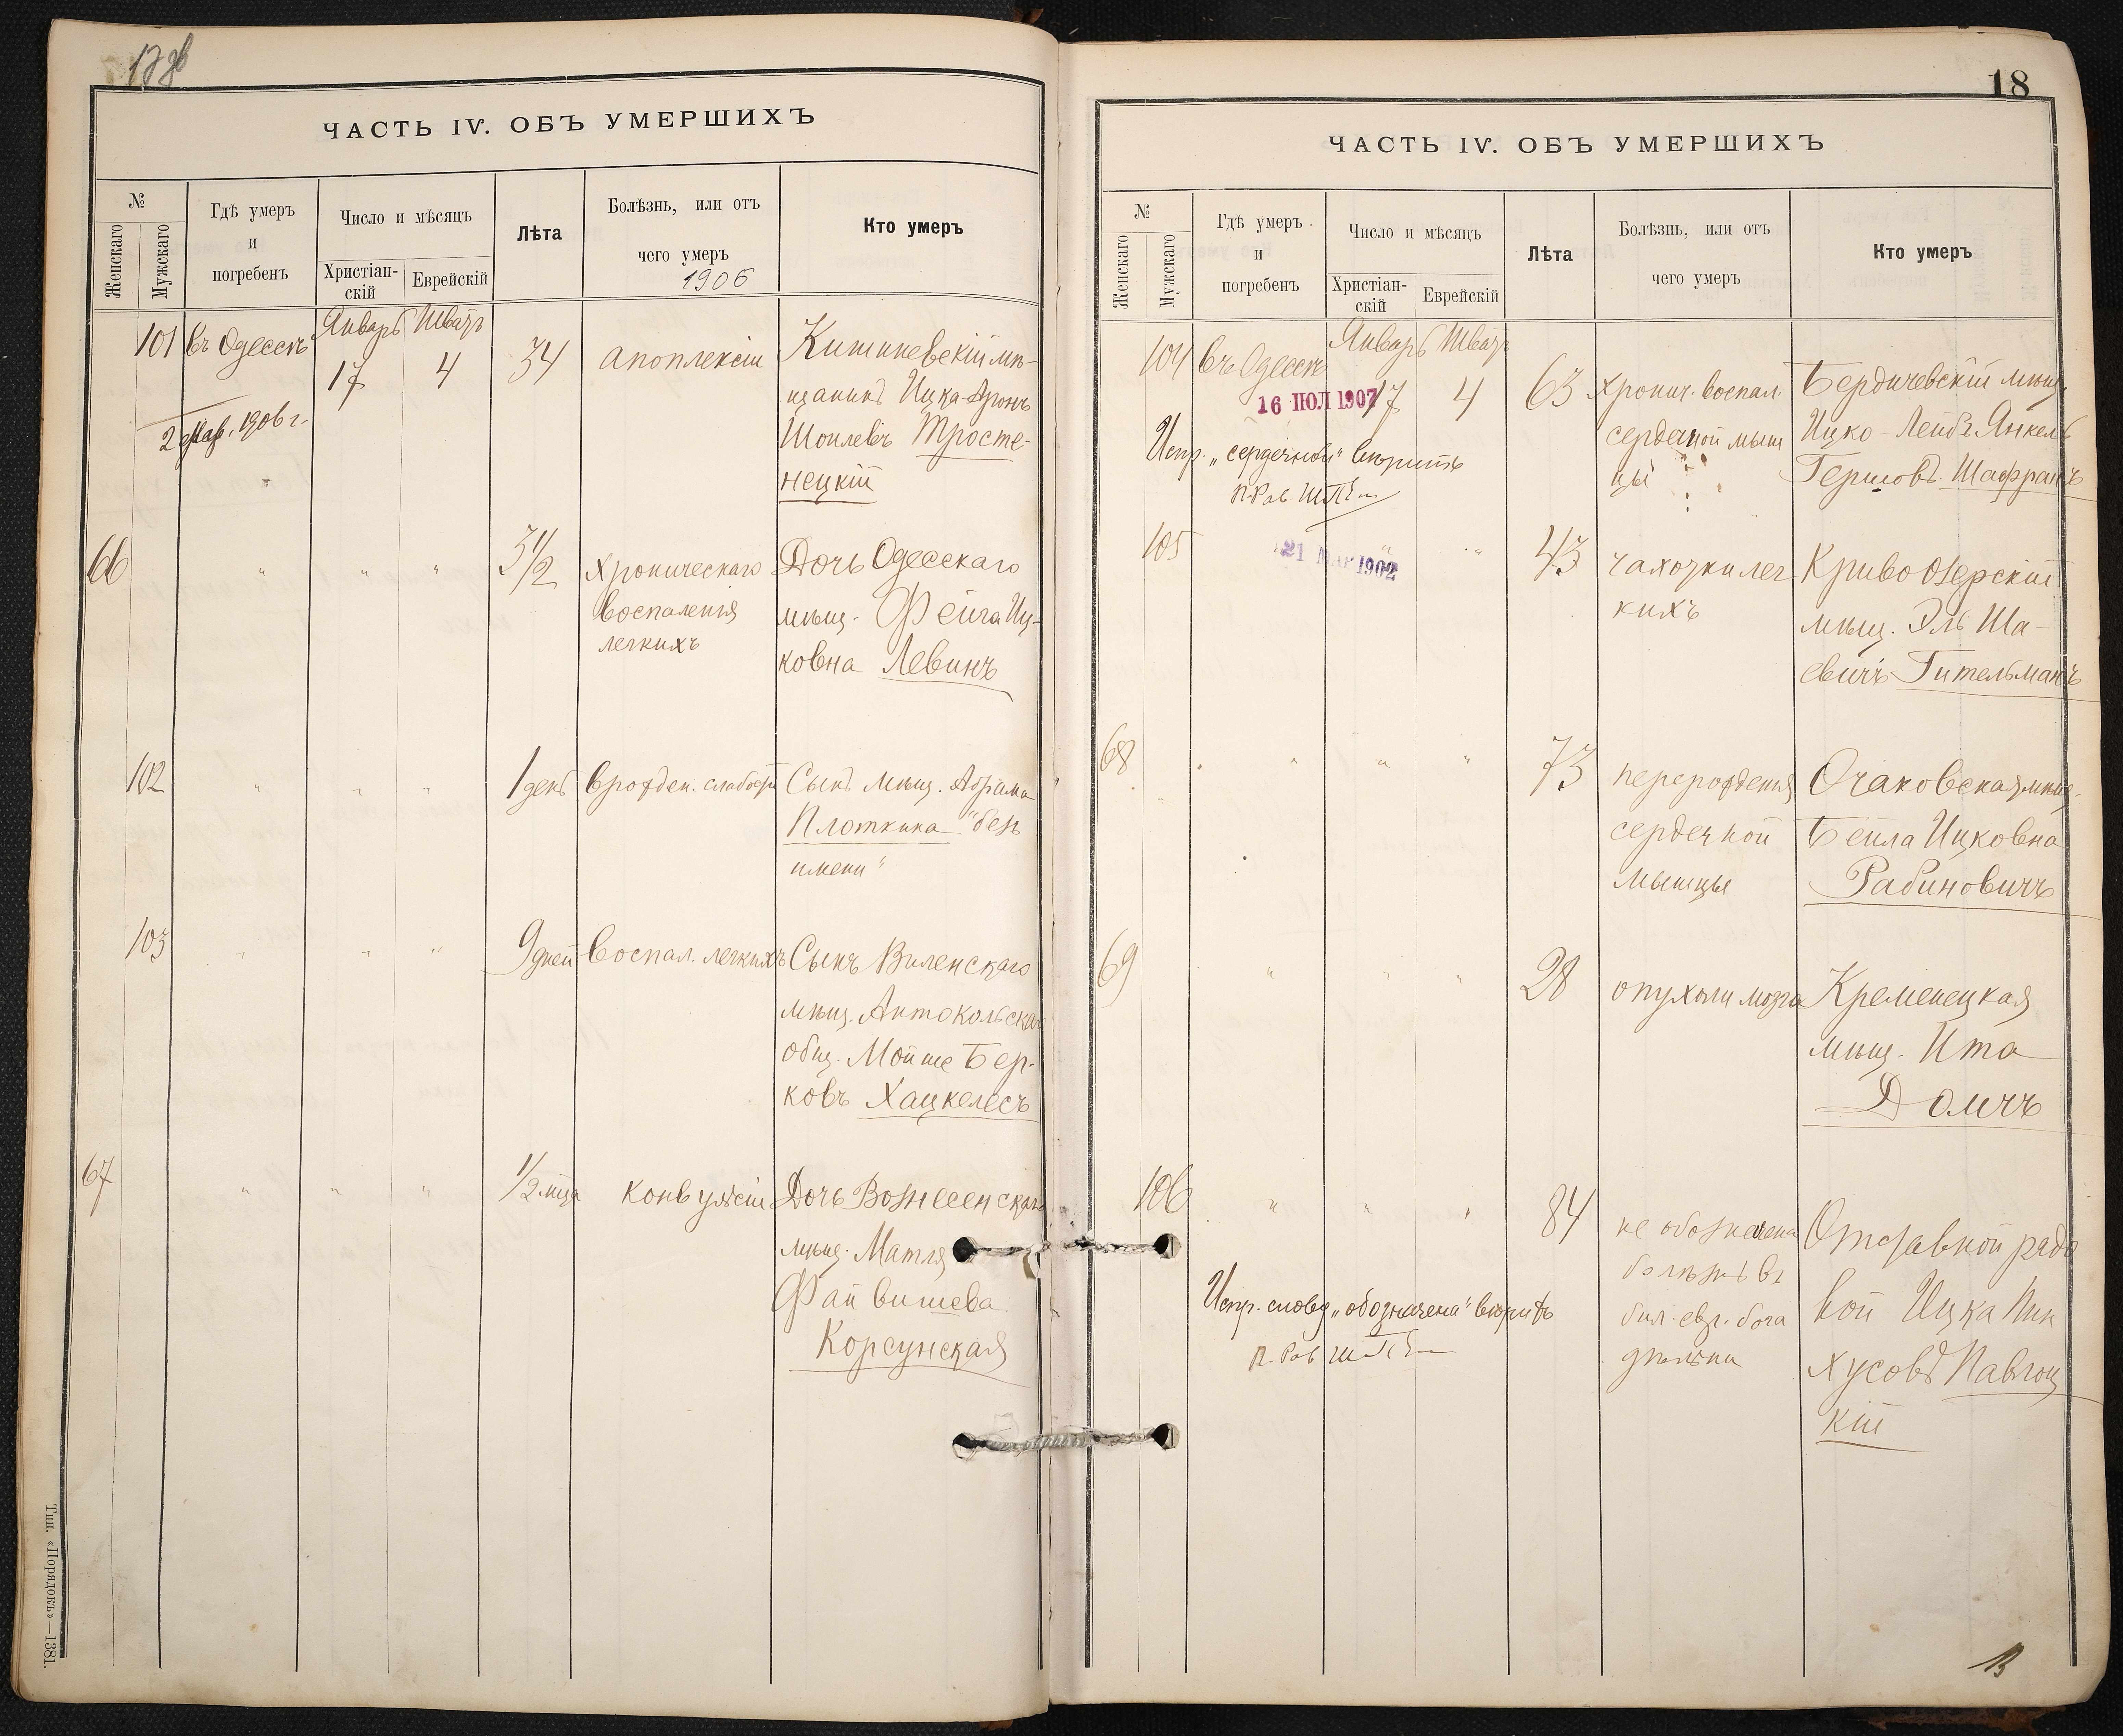 ЧАСТЬ IV. ОБЪ УМЕРШИХЪ
№
Женскаго
Мужскаго
Гдѣ умеръ
и
погребенъ
Число и мѣсяцъ
Христіан-
скій
Еврейскій
Лѣта
Болѣзнь, или отъ
чего умеръ
1906
Кто умеръ
101 въ Одессѣ Январь Шватъ
17 4 34 апоплексіи Кишиневскій мѣ-
щанинъ Ицка-Аронъ
Шоилевъ Тросте-
нецкій
1906 г.
66 " " " 3 1/2 хроническаго Дочь Одесскаго
воспаленія мѣщ. Фейга Иц-
легкихъ ковна Левинъ
102 " " " 1 день врожден. слабости Сынъ мѣщ. Абрама
Плоткина "безъ
имени"
103 " " " 9 дней воспал. легкихъ Сынъ Виленскаго
мѣщ. Антокольскаго
общ. Мойше Бер-
ковъ Хацкелесъ
67 " " " 1/2 мѣца конвульсіи Дочь Вознесенскаго
мѣщ. Матля
Файвишева
Корсунская
Тип. «Порядокъ»—1381.
18
ЧАСТЬ IV. ОБЪ УМЕРШИХЪ
№
Женскаго
Мужскаго
Гдѣ умеръ
и
погребенъ
Число и мѣсяцъ
Христіан-
скій
Еврейскій
Лѣта
Болѣзнь, или отъ
чего умеръ
Кто умеръ
104 въ Одессѣ Январь Шватъ
16 ІЮЛ 1907
17 4 63 хронич. воспал. Бердичевскій мѣщ.
сердечной мыш Ицко-Лейбъ Янкель
цы Гершовъ Шафранъ
Испр. „сердечной" вѣрить
105 21 МАР 1902 " " 43 чахотки лег Кривоозерскій
кихъ мѣщ. Эль Ша-
евичъ Гительманъ
68 " " " 73 перерожденія Очаковская мѣщ.
сердечной Бейла Ицковна
мышцы Рабиновичъ
69 " " " 28 опухоли мозга Кременецкая
мѣщ. Ита
Домчъ
106 " " " 84 не обозначена Отставной рядо
болѣзнь въ вой Ицка Пин
бил. евр. бога хусовъ Павлоц
дѣльни кій
Испр. слово „обозначена" вѣрить